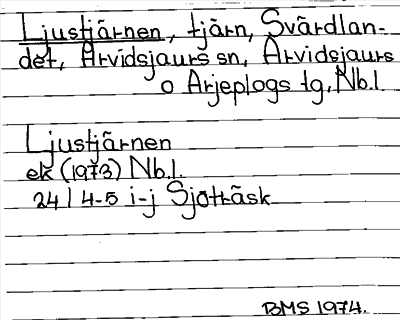 Ljustjärnen, tjärn, Svärdlan-
det, Arvidsjaurs sn, Arvidsjaurs
o Arjeplogs tg, Nb.l
Ljustjärnen
ek (1973) Nb.l.
24 I 4-5 i-j Sjöträsk
BMS 1974.